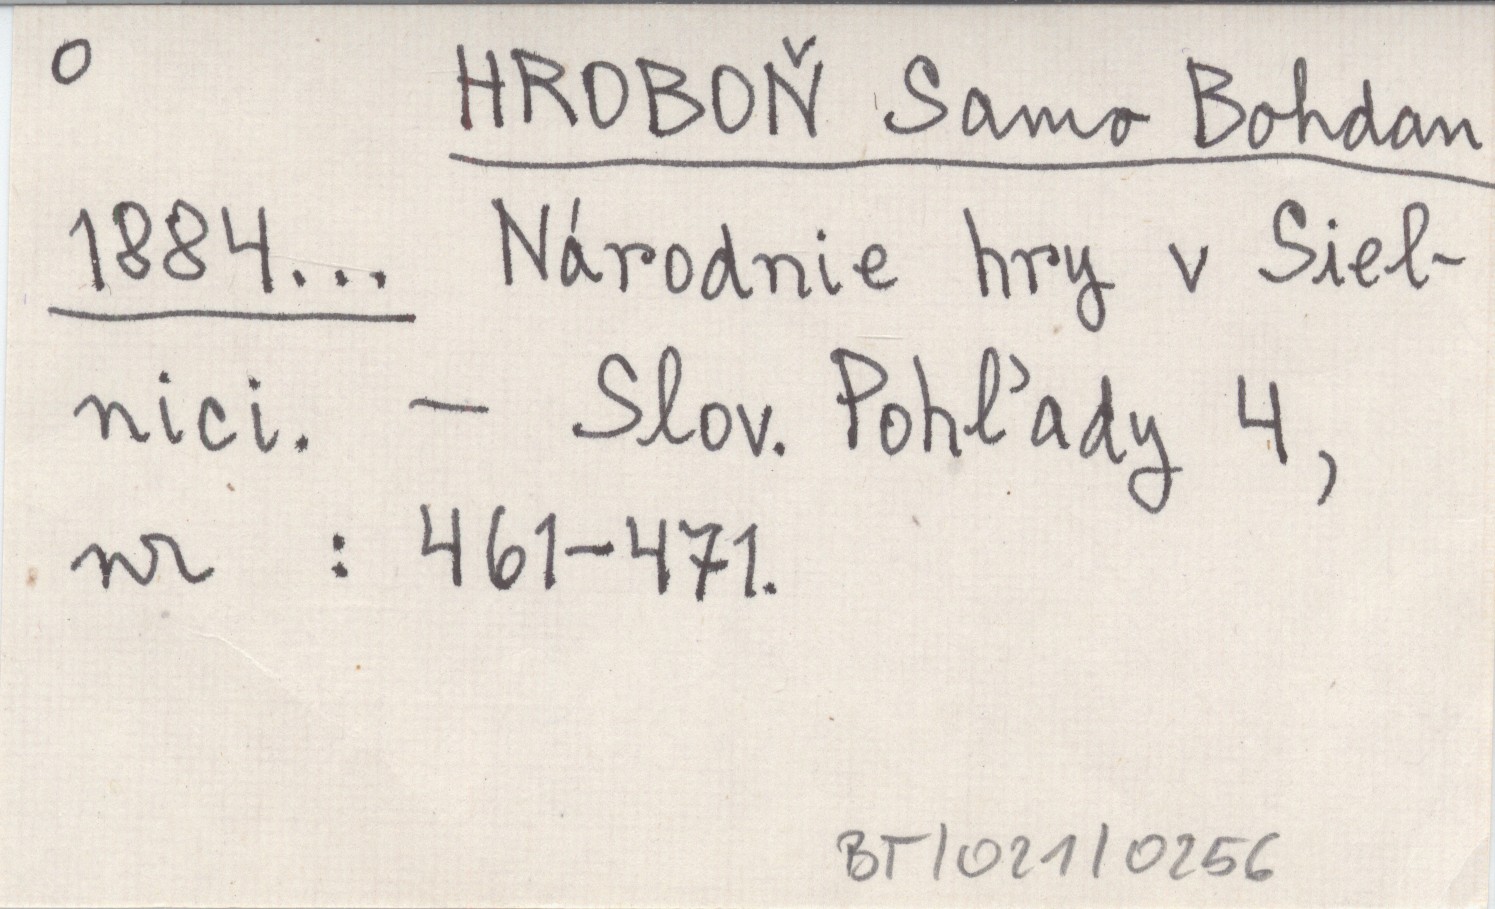 O
HROBOŇ Samo Bohdan
1884... Národnie hry v Siel-
nici. - Slov. Pohľady 4,
nr : 461-471.
BT/021/0256